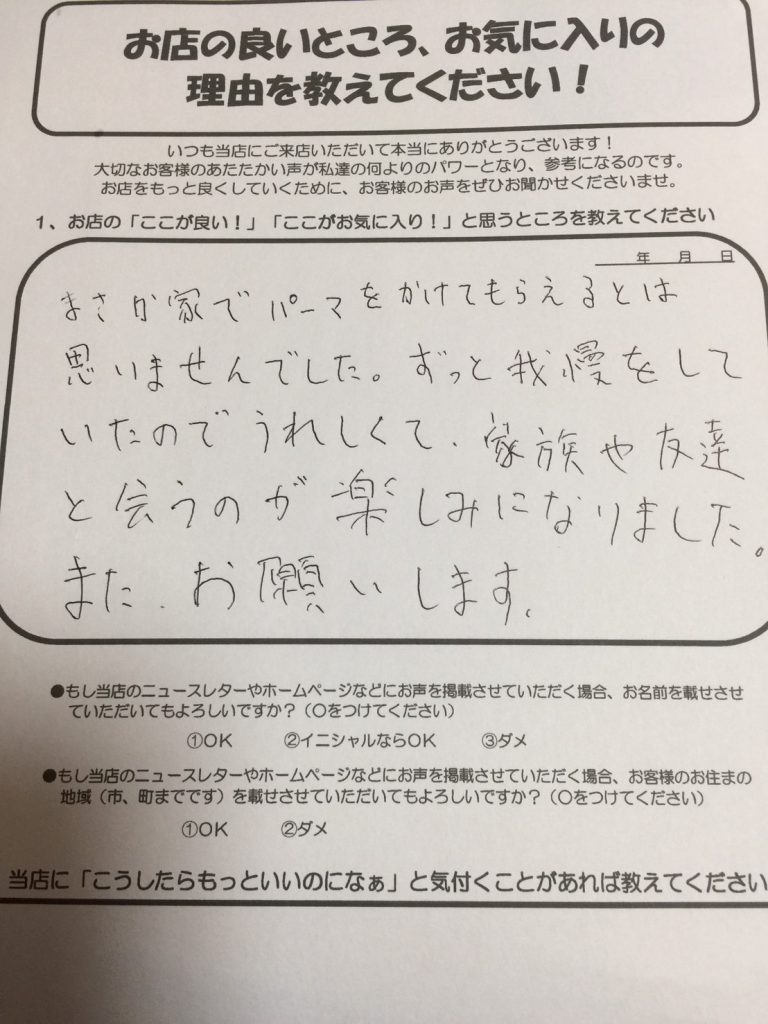 お店の良いところ、お気に入りの
理由を教えてください！
いつも当店にご来店いただいて本当にありがとうございます！
大切なお客様のあたたかい声が私達の何よりのパワーとなり、参考になるのです。
お店をもっと良くしていくために、お客様のお声をぜひお聞かせくださいませ。
1、お店の「ここが良い！」「ここがお気に入り！」と思うところを教えてください
年 月 日
まさか家でパーマをかけてもらえるとは
思いませんでした。ずっと我慢をして
いたのでうれしくて、家族や友達
と会うのが楽しみになりました。
また、お願いします。
●もし当店のニュースレターやホームページなどにお声を掲載させていただく場合、お名前を載せさせ
ていただいてもよろしいですか？（○をつけてください）
①OK ②イニシャルならOK ③ダメ
●もし当店のニュースレターやホームページなどにお声を掲載させていただく場合、お客様のお住まの
地域（市、町までです）を載せさせていただいてもよろしいですか？（○をつけてください）
①OK ②ダメ
当店に「こうしたらもっといいのになぁ」と気付くことがあれば教えてください